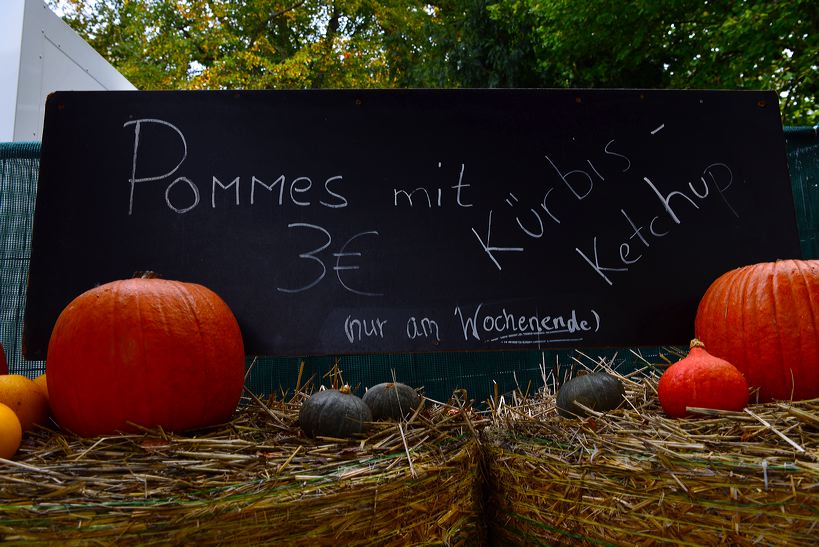 Pommes mit Kürbis-
Ketchup
3€
(nur am Wochenende)